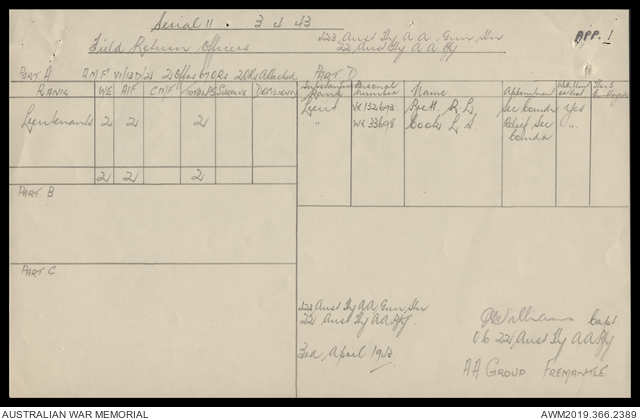 Serial 11   3 4 43
Field Return Officers
J23 Aust Hy A A Gun Stn
22 Aust Hy A A Bty
APP. 1
PART A   A M F   VI/13D/2s   2 Offrs 67 ORs 2 ORs Attached
RANK   WE   AIF   CMF   TOTALPS   SURPLUS   DEFICIENCY
Lieutenants   2   2   2
2   2   2
PART B
PART C
PART D
Substantive Rank   Personal Number   Name   Appointment   With Unit or Not
Lieut   VX 132693   Brett R L   Sec Comdr   Yes
"   WX 33698   Cook L S   Relief Sec Comdr   "
J23 Aust Hy AA Gun Stn
22 Aust Hy AA Bty
3rd April 1943
Williams Capt
O C 22 Aust Hy A A Bty
AA GROUP FREMANTLE
AUSTRALIAN WAR MEMORIAL
AWM2019.366.2389